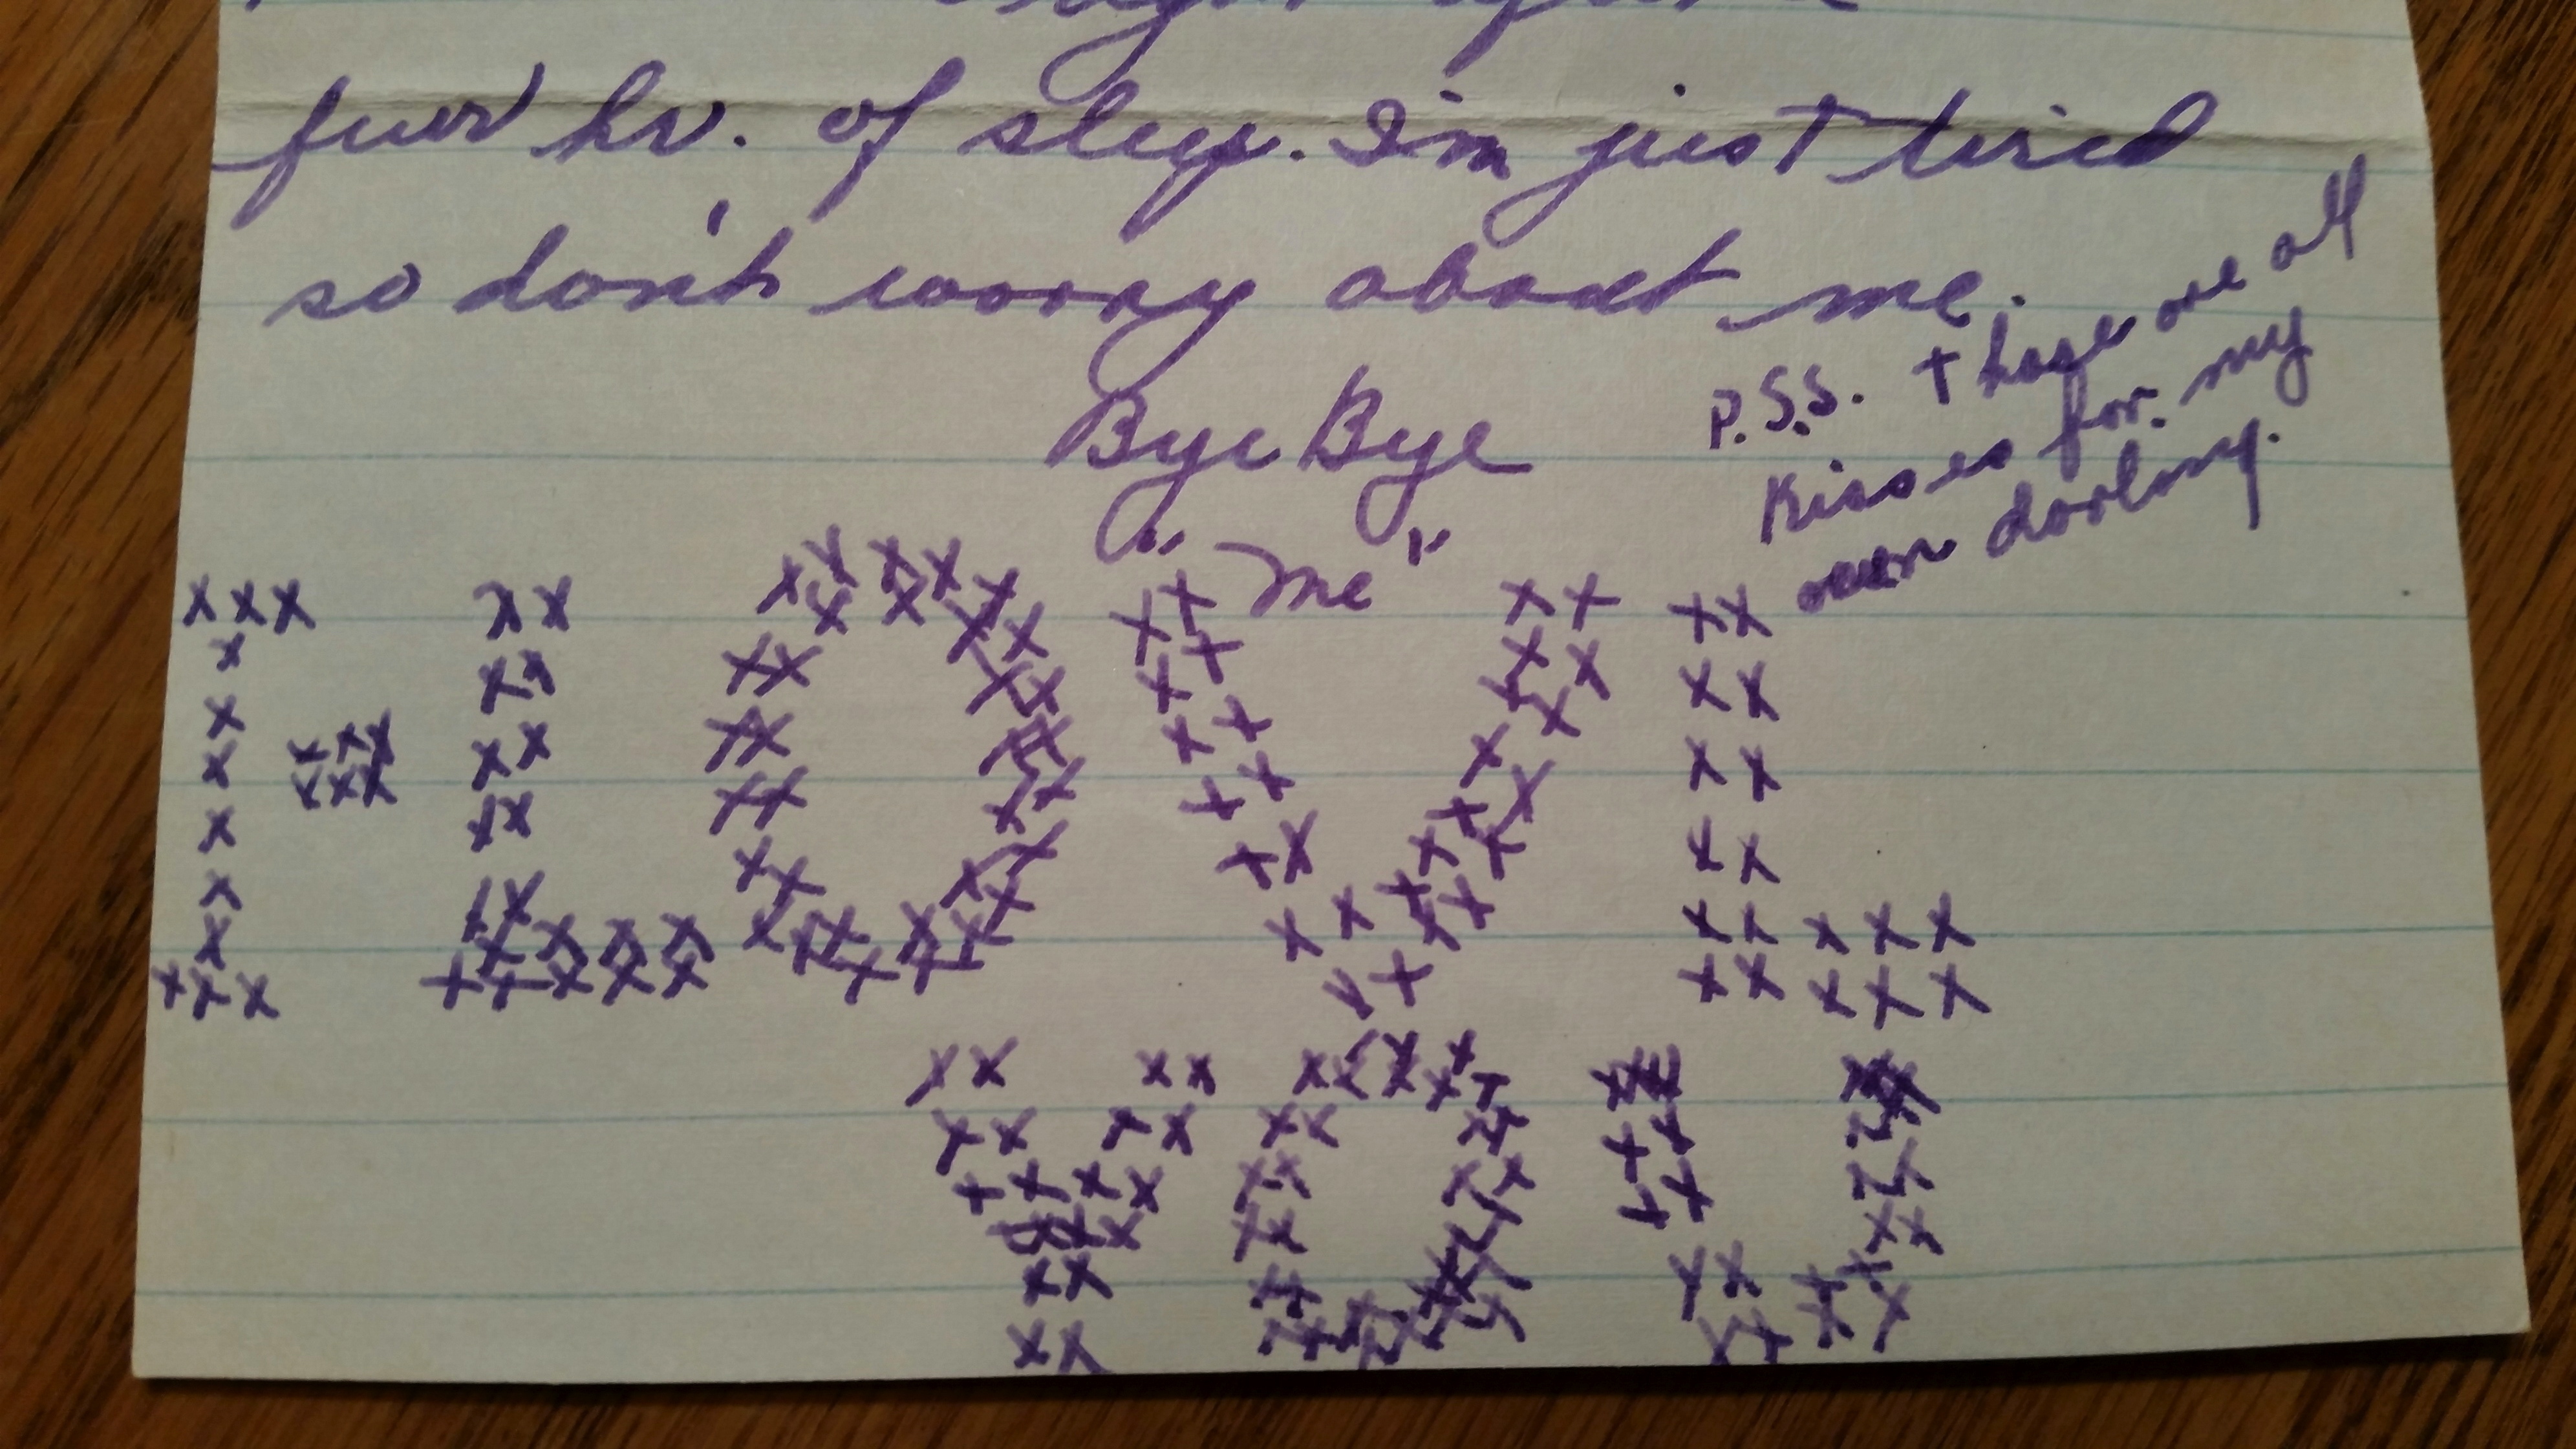 few hr. of sleep. I'm just tired
so don't worry about me.
Bye Bye
"me"
P.S.S. Those are all
kisses for my
own darling.
I - LOVE
YOU